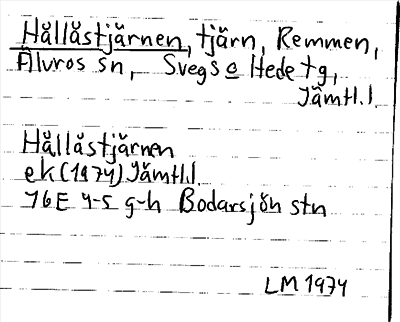 Hållåstjärnen, tjärn, Remmen,
Älvros sn, Svegs o Hede tg,
Jämtl.l
Hållåstjärnen
ek (1974) Jämtl.l
16E 4-5 g-h Bodarsjön stn
LM 1974